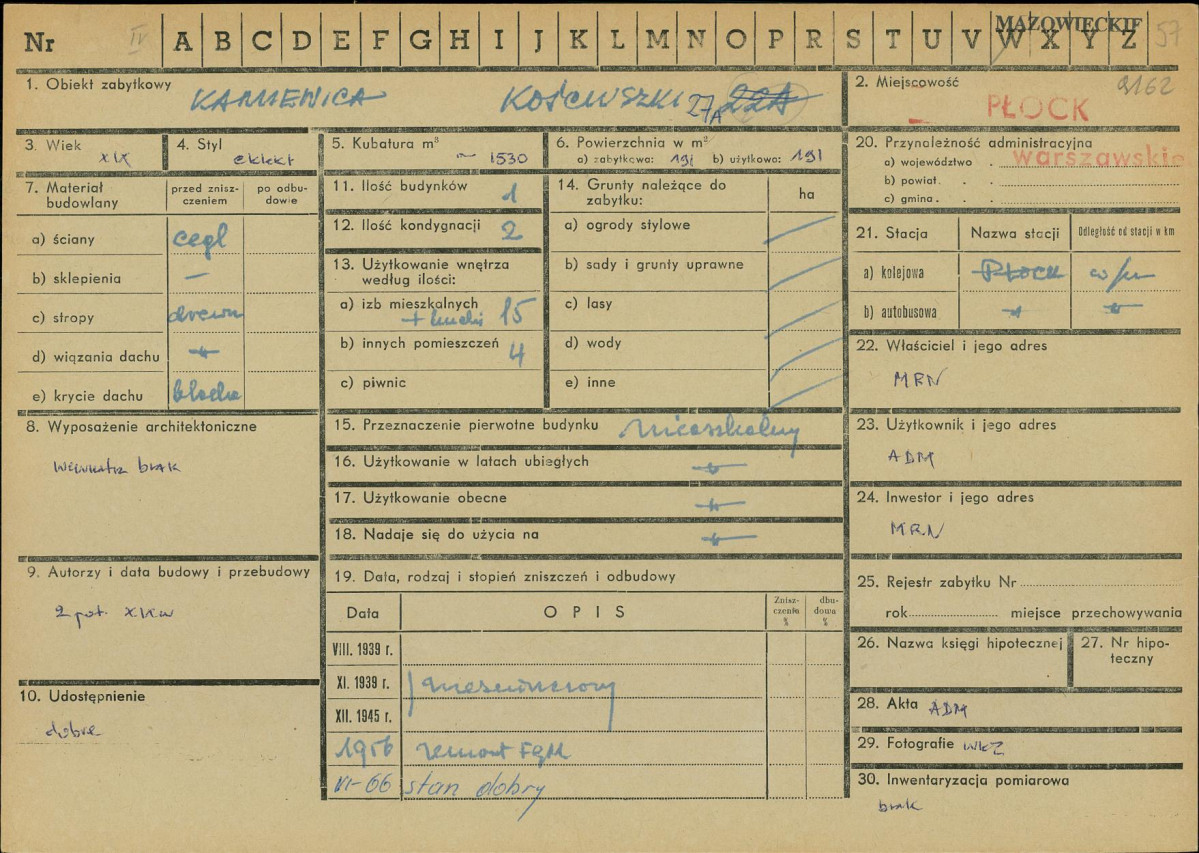 Nr IV A B C D E F G H I J K L M N O P R S T U V W X Y Z MAZOWIECKIE 57
1. Obiekt zabytkowy KAMIENICA KOŚCIUSZKI 27A 22A
2. Miejscowość 9162
PŁOCK
3. Wiek XIX
4. Styl eklekt
5. Kubatura m³ ~ 1530
6. Powierzchnia w m²
a) zabytkowa: 191 b) użytkowa: 191
20. Przynależność administracyjna
a) województwo warszawskie
b) powiat
c) gmina
7. Materiał budowlany
przed zniszczeniem
po odbudowie
a) ściany cegł
b) sklepienia —
c) stropy drewn
d) wiązania dachu -"-
e) krycie dachu blacha
11. Ilość budynków 1
12. Ilość kondygnacji 2
13. Użytkowanie wnętrza
według ilości:
a) izb mieszkalnych 15
+ kuchni
b) innych pomieszczeń 4
c) piwnic
14. Grunty należące do
zabytku:
ha
a) ogrody stylowe
b) sady i grunty uprawne
c) lasy
d) wody
e) inne
21. Stacja Nazwa stacji Odległość od stacji w km
a) kolejowa PŁOCK
b) autobusowa -"- -"-
22. Właściciel i jego adres
MRN
8. Wyposażenie architektoniczne
wewnątrz brak
15. Przeznaczenie pierwotne budynku mieszkalny
16. Użytkowanie w latach ubiegłych -"-
17. Użytkowanie obecne -"-
18. Nadaje się do użycia na -"-
23. Użytkownik i jego adres
ADM
24. Inwestor i jego adres
MRN
9. Autorzy i data budowy i przebudowy
2 poł. XIX w
19. Data, rodzaj i stopień zniszczeń i odbudowy
Data OPIS Zniszczenie % dbudowa %
VIII. 1939 r.
XI. 1939 r. nieszniczony
XII. 1945 r.
1956 remont FGM
VI-66 stan dobry
25. Rejestr zabytku Nr
rok miejsce przechowywania
26. Nazwa księgi hipotecznej
27. Nr hipoteczny
10. Udostępnienie
dobre
28. Akta ADM
29. Fotografie WKZ
30. Inwentaryzacja pomiarowa
brak